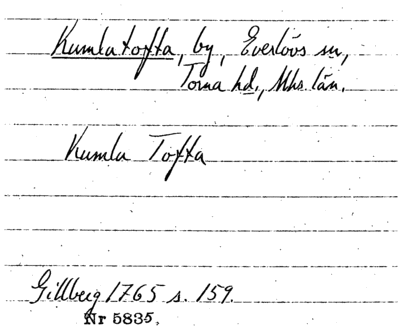 Kumlatofta, by, Everlövs sn,
Torna hd., Mhs. län.
Kumla Tofta
Gillberg 1765 s. 159.
Nr 5835.